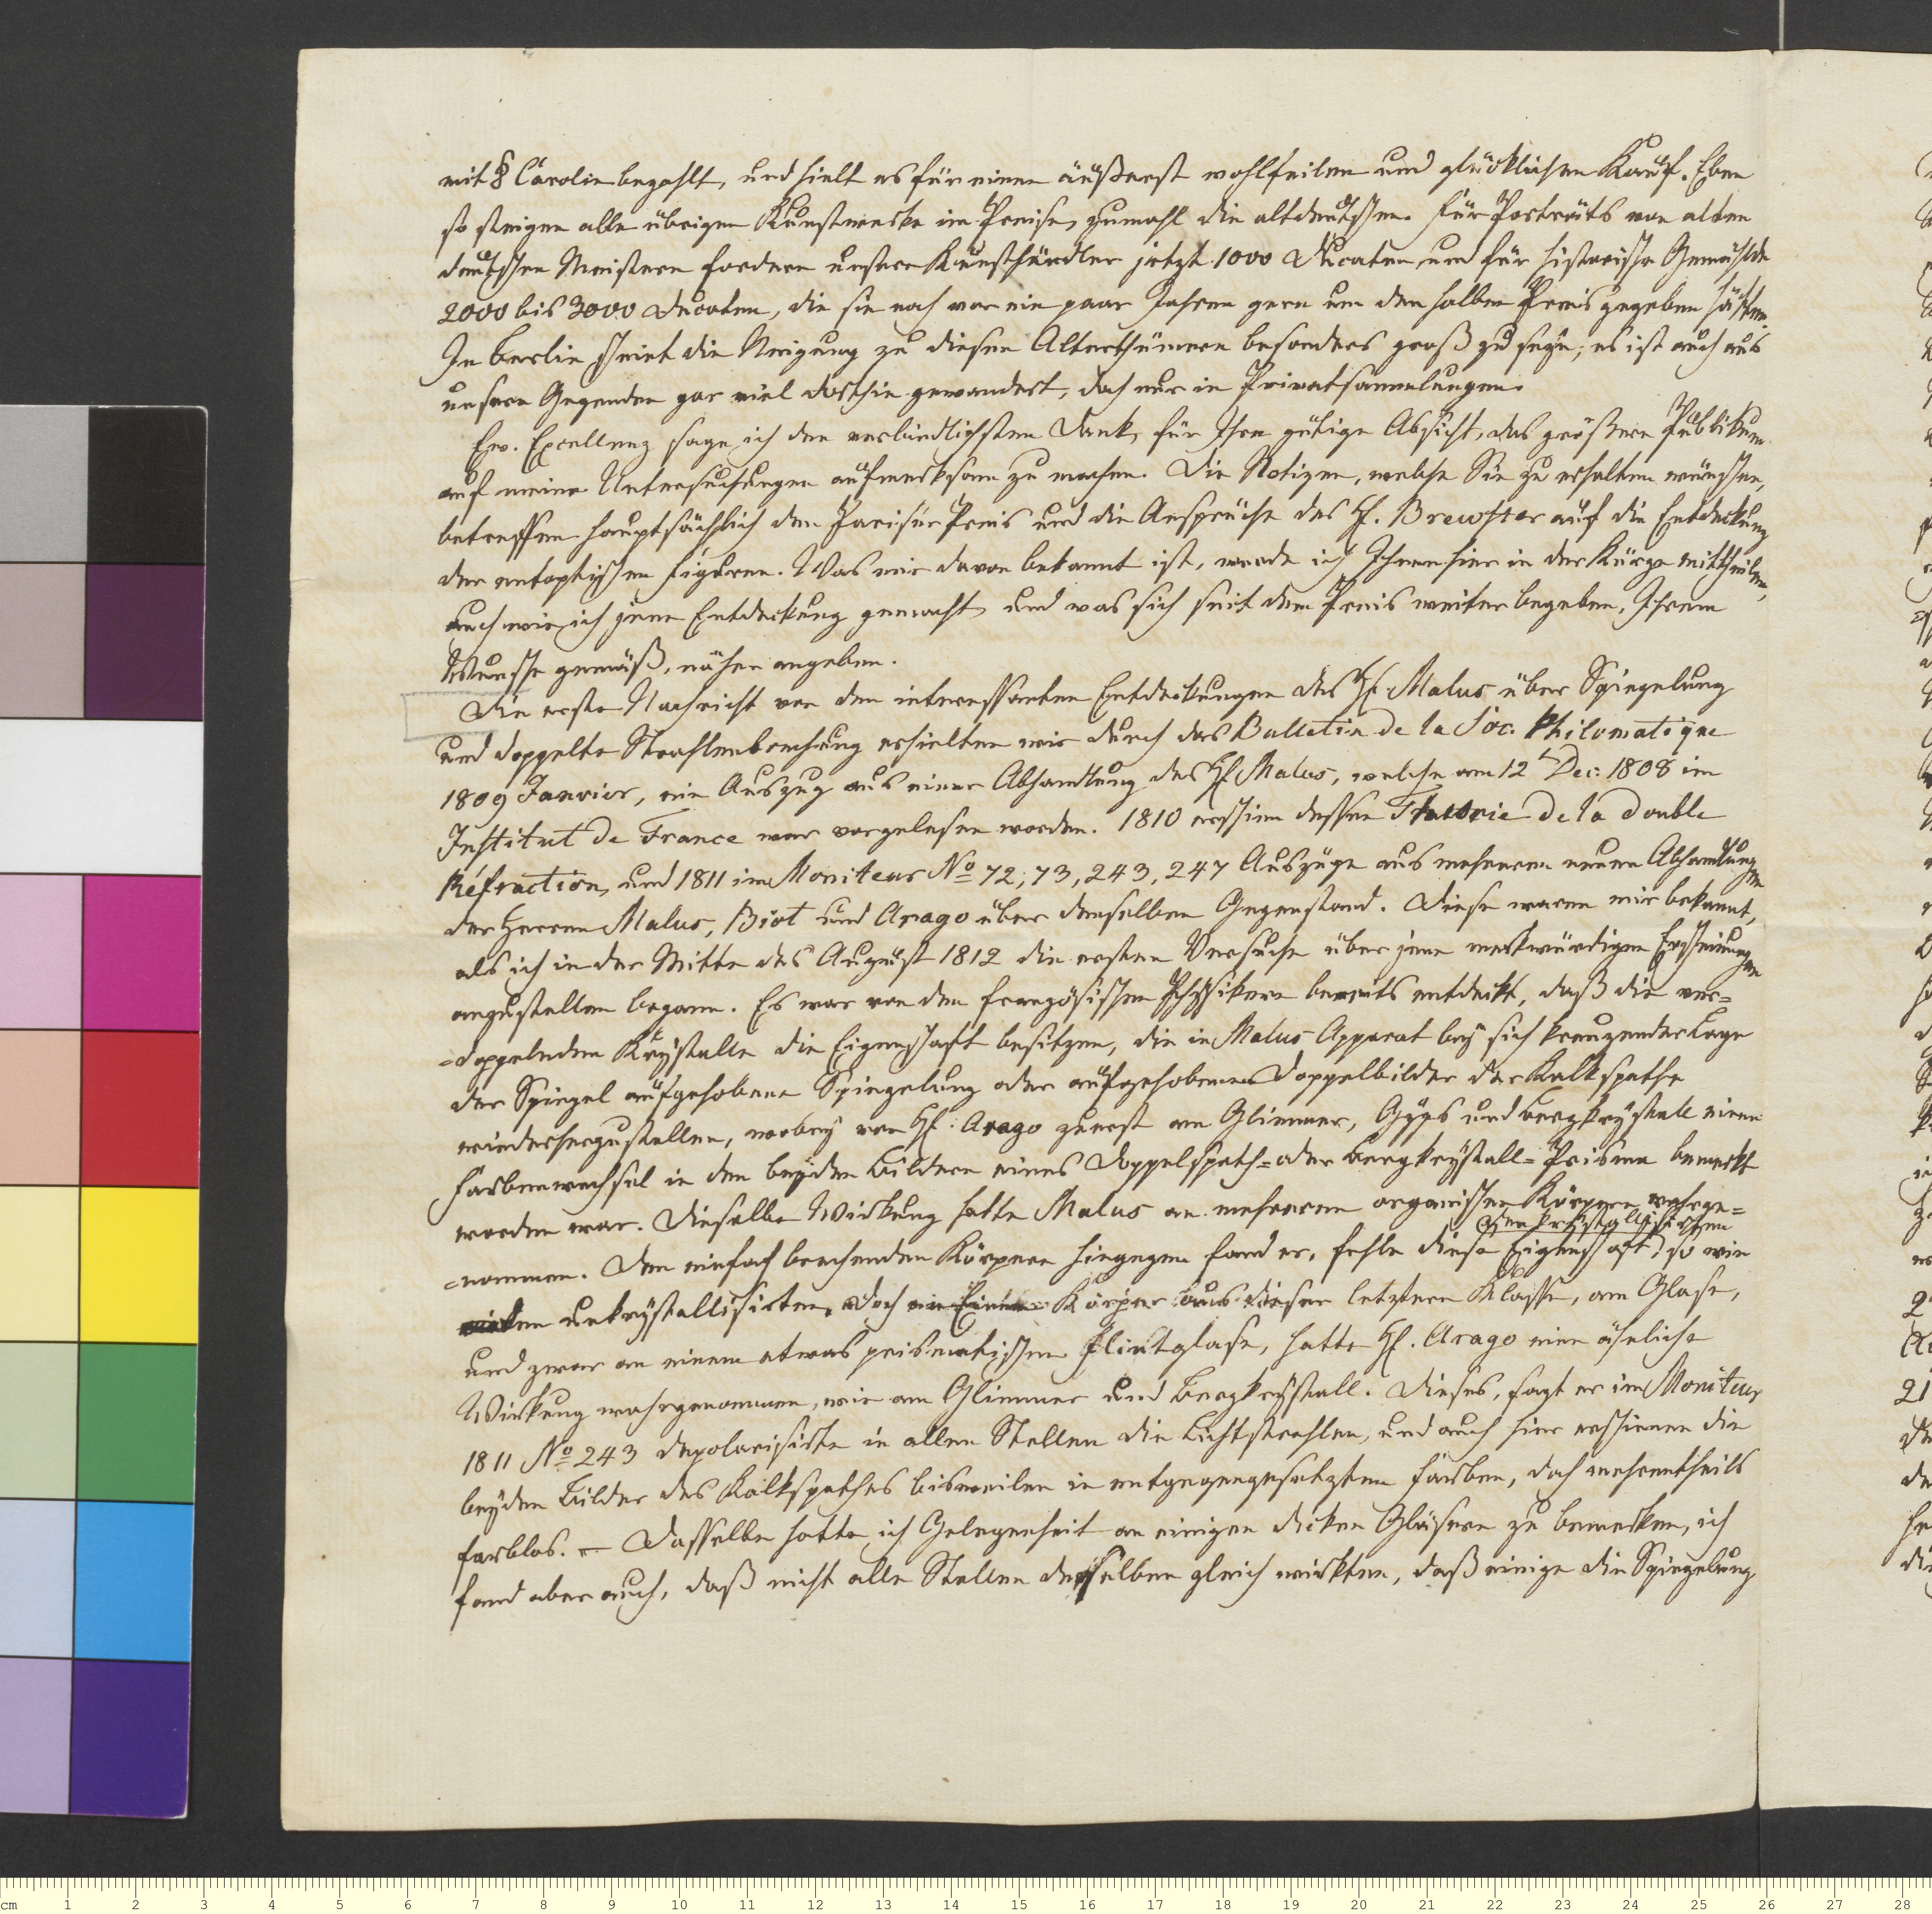 mit 8 Carolin bezahlt, und hielt es für einen äußerst wohlfeilen und glücklichen Kauf. Eben
so steigen alle übrigen Kunstwerke im Preise, zumahl die altdeutschen. Für Porträts von alten
deutschen Meistern fordern unsere Kunsthändler jetzt 1000 Ducaten und für historische Gemählde
2000 bis 3000 Ducaten, die sie noch vor ein paar Jahren gern um den halben Preis gegeben hätten.
In Berlin scheint die Neigung zu diesen Alterthümern besonders groß zu seyn; es ist auch aus
unsern Gegenden gar viel dorthin gewandert, doch nur in Privatsammlungen.
Ew. Excellenz sage ich den verbindlichsten Dank, für Ihre gütige Absicht, das größere Publikum
auf meine Untersuchungen aufmerksam zu machen. Die Notizen, welche Sie zu erhalten wünschen,
betreffen hauptsächlich den Pariser Preis und die Ansprüche des H. Brewster auf die Entdeckung
der entoptischen Figuren. Was mir davon bekannt ist, werde ich Ihnen hier in der Kürze mittheilen,
auch wie ich jene Entdeckung gemacht, und was sich seit dem Preis weiter begeben, Ihrem
Wunsche gemäß, näher angeben.
Die erste Nachricht von den interessanten Entdeckungen des H. Malus über Spiegelung
und doppelte Strahlenbrechung erhielten wir durch das Bulletin de la Soc. Philomatique
1809 Janvier, ein Auszug aus einer Abhandlung des H. Malus, welche am 12t Dec. 1808 im
Institut de France war vorgelesen worden. 1810 erschien dessen Theorie de la double
Réfraction, und 1811 im Moniteur No 72, 73, 243, 247 Auszüge aus mehreren neuen Abhandlungen
der Herren Malus, Biot und Arago über denselben Gegenstand. Diese waren mir bekannt,
als ich in der Mitte des August 1812 die ersten Versuche über jene merkwürdigen Erscheinungen
anzustellen begann. Es war von den französischen Physikern bereits entdeckt, daß die ver=
=doppelnden Krystalle die Eigenschaft besitzen, die in Malus Apparat bey sich kreuzender Lage
der Spiegel aufgehobene Spiegelung oder aufgehobenen Doppelbilder der Kalkspathe
wiederherzustellen, wobey von H. Arago zuerst am Glimmer, Gyps und Bergkrystall einen
Farbenwechsel in den beyden Bildern eines Doppelspath= oder Bergkrystall=Prisma bemerkt
worden war. Dieselbe Wirkung hatte Malus an mehreren organischen Körpern wahrge=
=nommen. Den einfach brechenden Körpern hingegen fand er, fehle diese Eigenschaft, so wie
den krystallisirten
den unkrystallisirten, doch Körper aus dieser letztern Klasse, am Glase,
und zwar an einem etwas prismatischen Flintglase, hatte H. Arago eine ähnliche
Wirkung wahrgenommen, wie am Glimmer und Bergkrystall. Dieses, sagt er im Moniteur
1811 No 243 depolarisirte in allen Stellen die Lichtstrahlen, und auch hier erschienen die
beyden Bilder des Kalkspathes bisweilen in entgegengesetzten Farben, doch mehrentheils
farblos. — Dasselbe hatte ich Gelegenheit an einigen dicken Gläsern zu bemerken, ich
fand aber auch, daß nicht alle Stellen derselben gleich wirkten, daß einige die Spiegelung